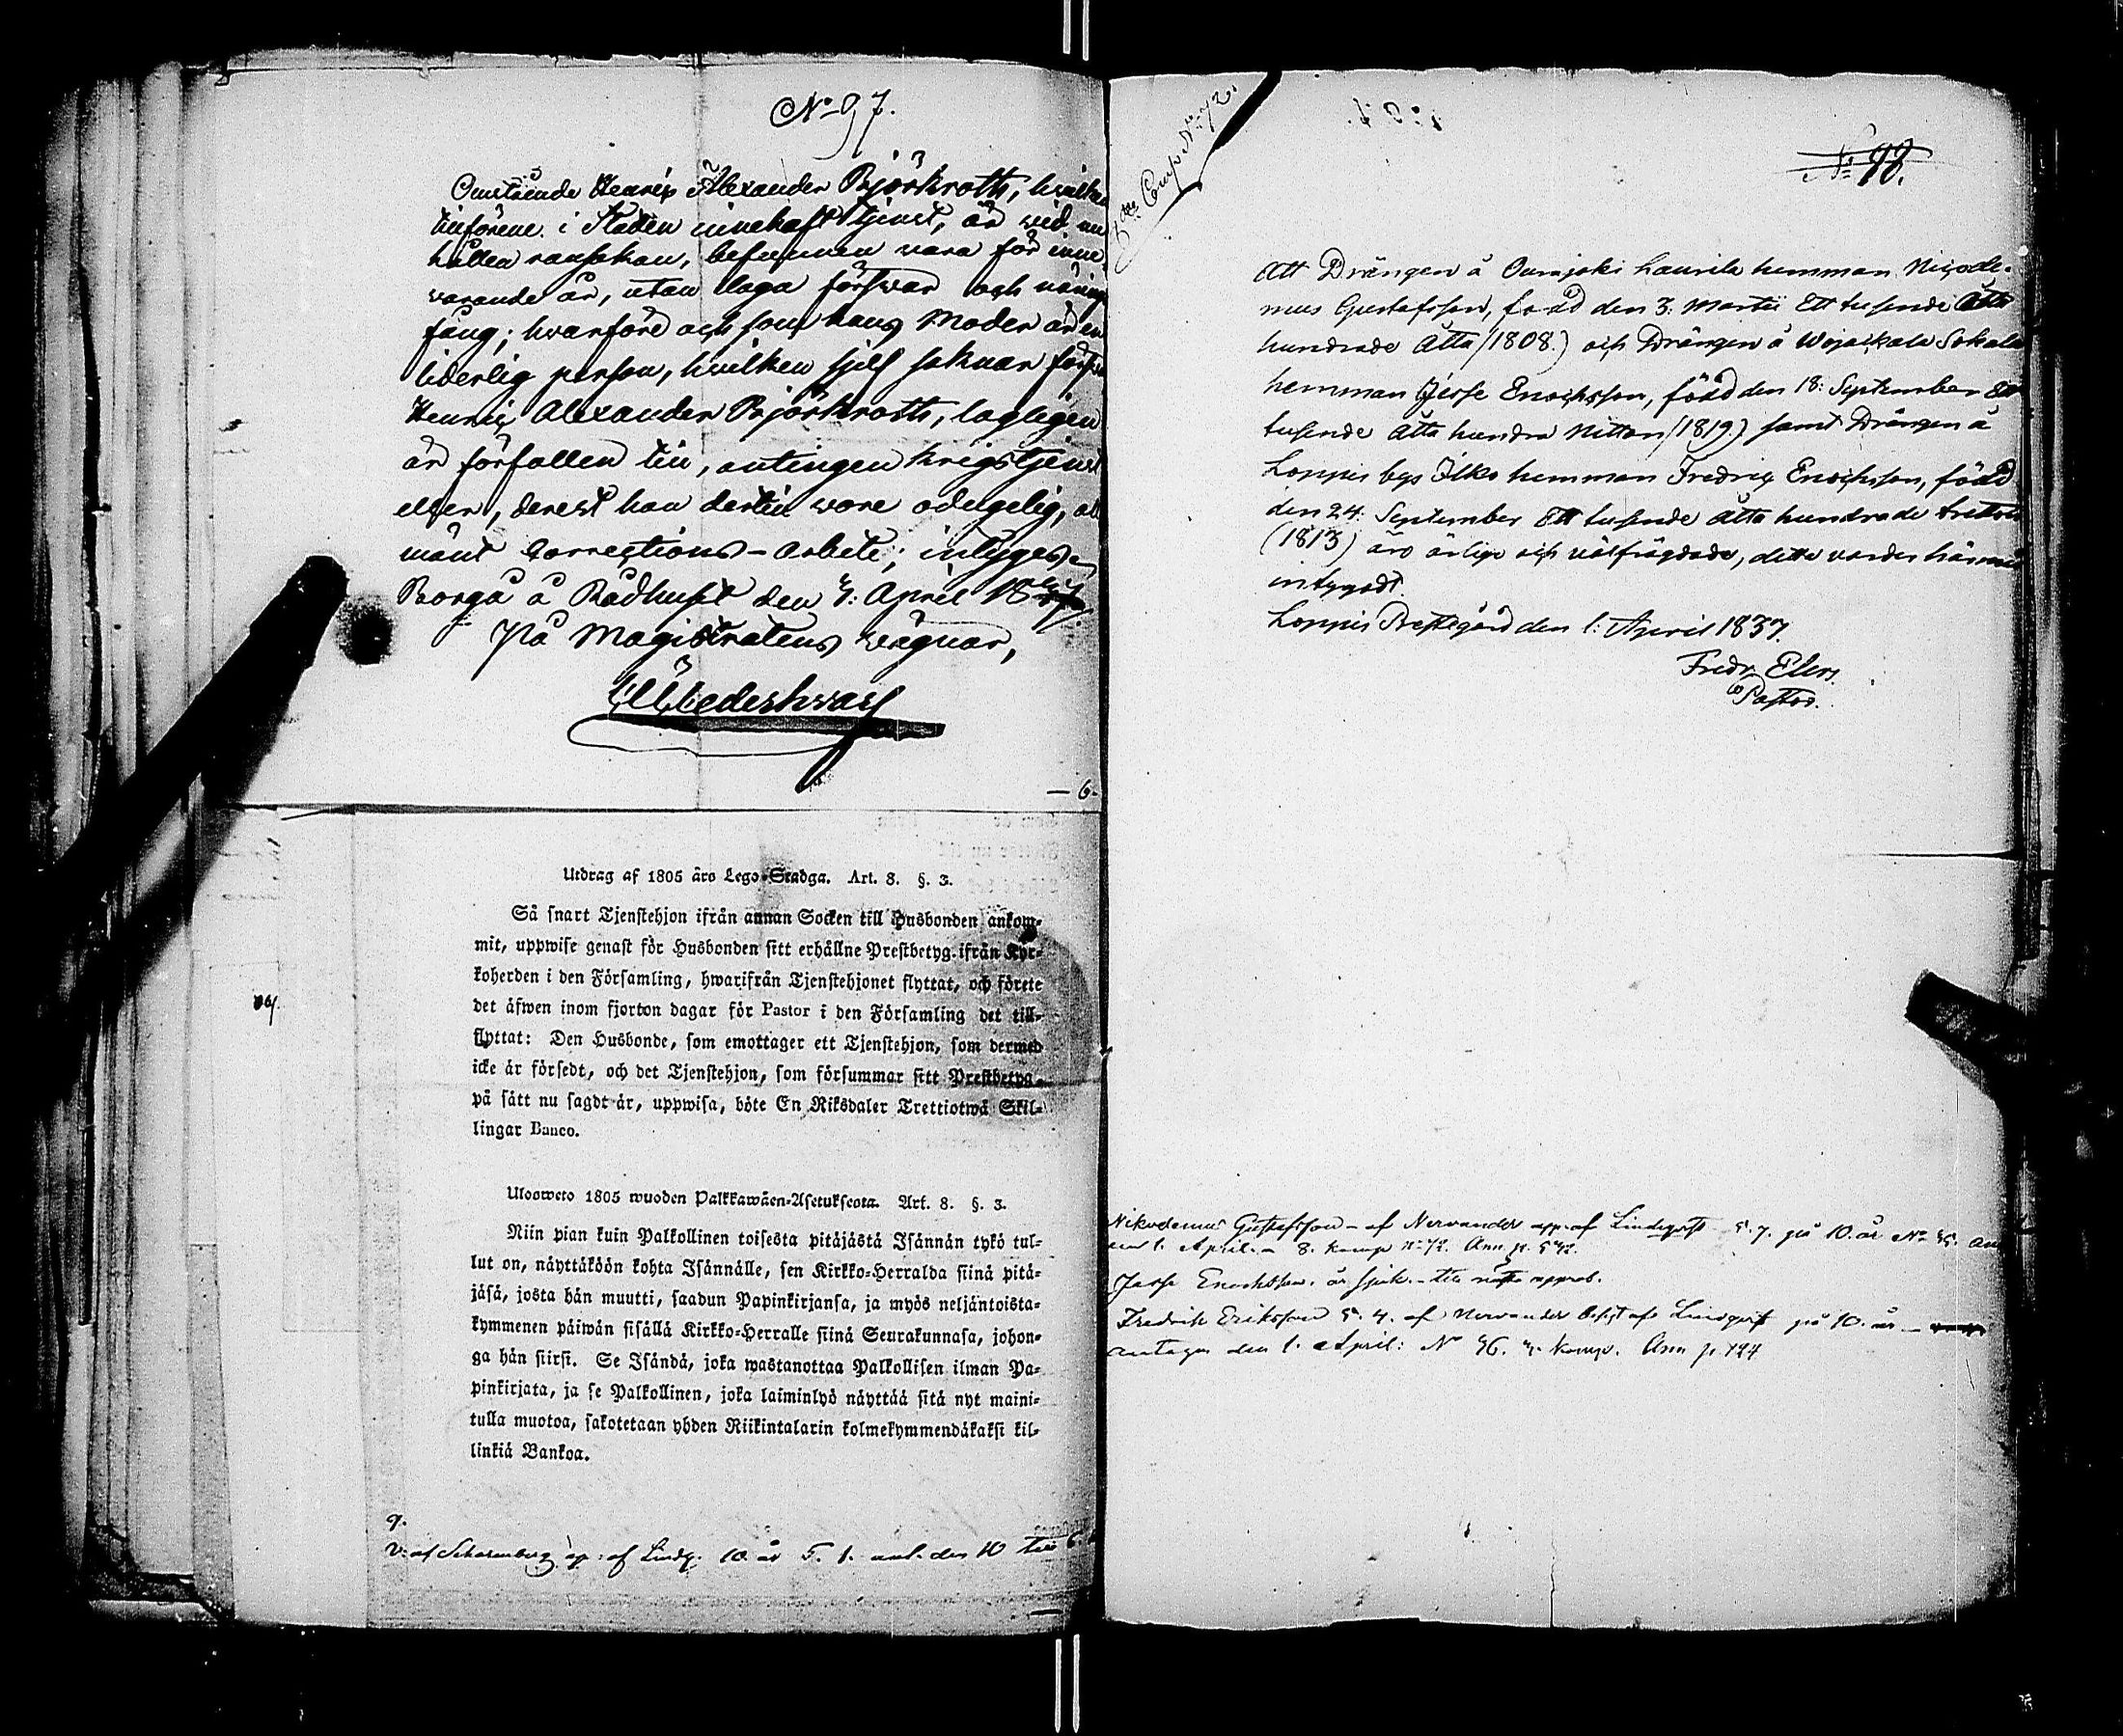 No 97.
Omstående Henric Alexander Björkroth, hvilken
tillförene i Staden innehaft tjenst, är wid nu
hållen ransakan, befunnen vara för inne
warande år, utan laga förswar och närings
fång; hwarföre och som hans Moder är en
liderlig person, hvilken sjelf saknar förswar
Henric Alexander Björkroth, lagligen
är förfallen till, antingen krigstjenst
eller, derest han dertill wore oduglig, all
mänt Corrections-arbete; intygas
Borgå å Rådhuset den 4: April 1837.
På Magistratens wägnar,
— 6.
Utdrag af 1805 års Lego-Stadga. Art. 8. §. 3.
Så snart Tjenstehjon ifrån annan Socken till Husbonden ankom-
mit, uppwise genast för Husbonden sitt erhållne Prestbetyg ifrån Kyr-
koherden i den Församling, hwarifrån Tjenstehjonet flyttat, och förete
det äfwen inom fjorton dagar för Pastor i den Församling det till-
flyttat: Den Husbonde, som emottager ett Tjenstehjon, som dermed
icke är försedt, och det Tjenstehjon, som försummar sitt Prestbetyg
på sätt nu sagdt är, uppwisa, böte En Riksdaler Trettiotwå Skil-
lingar Banco.
Ulosweto 1805 wuoden Palkkawäen-Asetuksesta. Art. 8. §. 3.
Niin pian kuin Palkollinen toisesta pitäjästä Isännän tykö tul-
lut on, näyttäköön kohta Isännälle, sen Kirkko-Herralda siinä pitä-
jäsä, josta hän muutti, saadun Papinkirjansa, ja myös neljäntoista-
kymmenen päiwän sisällä Kirkko-Herralle siinä Seurakunnasa, johon-
ga hän siirsi. Se Isändä, joka wastanottaa Palkollisen ilman Pa-
pinkirjata, ja se Palkollinen, joka laiminlyö näyttää sitä nyt maini-
tulla muotoa, sakotetaan yhden Riikintalarin kolmekymmendäkaksi kil-
linkiä Bankoa.
9.
af Scharenberg ap: af Lindq. 10 år F. 1. ant. den 10 till 6.
8de Comp No 72.
No 98.
Att Drängen å Ourajoki Laurila hemman Nicode-
mus Gustafsson, född den 3. Martii Ett tusende Åtta
hundrade Åtta (1808.) och Drängen å Wojackala Sokala
hemman Jesse Enochsson, född den 18: September Ett
tusende Åtta hundra Nitton (1819.) samt Drängen å
Loppis bys Ilko hemman Fredric Enochsson, född
den 24. September Ett tusende Åtta hundrade tretton
(1813) äro ärlige och välfrägdade, detta varder härmed
intygadt.
Loppis Prestegård den 1: April 1837.
Fredr. Elers
Pastor.
Nikodemus Gustafsson – af Nervander app. af Lindqvist 5. 7. på 10. år No 45. an
den 1. April. – 8. komp No 72. Ann p.
Jesse Enochsson. är sjuk. – till nästa approb.
Fredrik Eriksson 5. 4. af Nervander besigt af Lindqvist på 10. år –
antagen den 1. April: No 46. 4. komp. Ann p. 124